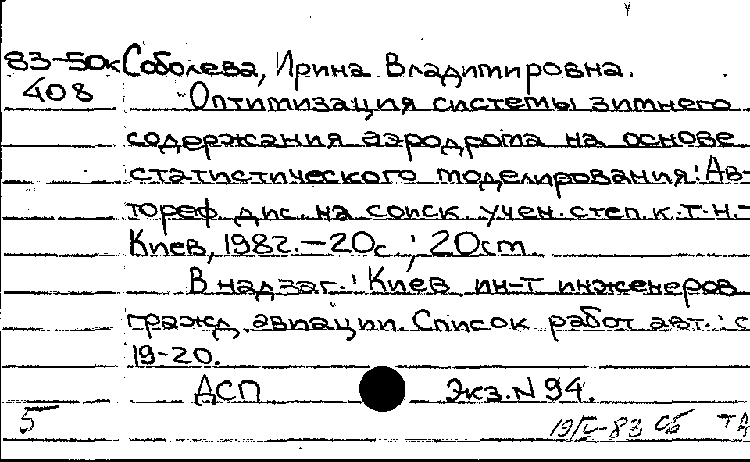 83-50к Соболева, Ирина Владимировна.
408 Оптимизация системы зимнего
содержания аэродрома на основе
статистического моделирования: Ав-
тореф. дис. на соиск. учен. степ. к.т.н.-
Киев, 1982.-20с.; 20см
В надзаг.: Киев. ин-т инженеров
гражд. авиации. Список работ авт.: с
19-20.
ДСП Экз.N 94.
5 19/V-83 Сб